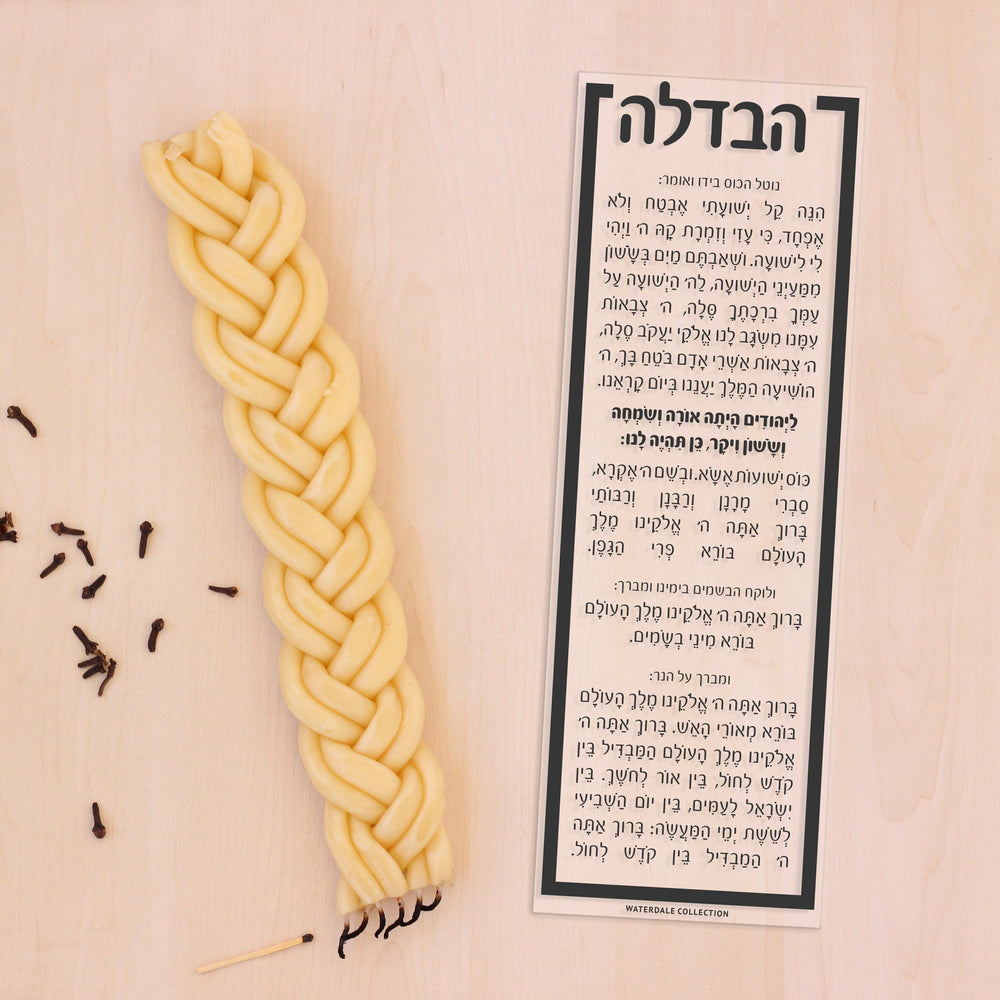 הבדלה
נוטל הכוס בידו ואומר:
הִנֵּה קֵל יְשׁוּעָתִי אֶבְטַח וְלֹא
אֶפְחָד, כִּי עָזִּי וְזִמְרָת קָהּ ה׳ וַיְהִי
לִי לִישׁוּעָה. וּשְׁאַבְתֶּם מַיִם בְּשָׂשׂוֹן
מִמַּעַיְנֵי הַיְשׁוּעָה, לַה׳ הַיְשׁוּעָה עַל
עַמְּךָ בִרְכָתֶךָ סֶּלָה, ה׳ צְבָאוֹת
עִמָּנוּ מִשְׂגָּב לָנוּ אֱלֹקֵי יַעֲקֹב סֶלָה,
ה׳ צְבָאוֹת אַשְׁרֵי אָדָם בֹּטֵחַ בָּךְ, ה׳
הוֹשִׁיעָה הַמֶּלֶךְ יַעֲנֵנוּ בְיוֹם קָרְאֵנוּ.
לַיְּהוּדִים הָיְתָה אוֹרָה וְשִׂמְחָה
וְשָׂשׂוֹן וִיקָר, כֵּן תִּהְיֶה לָנוּ:
כּוֹס יְשׁוּעוֹת אֶשָּׂא. וּבְשֵׁם ה׳ אֶקְרָא,
סַבְרִי מָרָנָן וְרַבָּנָן וְרַבּוֹתַי
בָּרוּךְ אַתָּה ה׳ אֱלֹקֵינוּ מֶלֶךְ
הָעוֹלָם בּוֹרֵא פְּרִי הַגָּפֶן.
ולוקח הבשמים בימינו ומברך:
בָּרוּךְ אַתָּה ה׳ אֱלֹקֵינוּ מֶלֶךְ הָעוֹלָם
בּוֹרֵא מִינֵי בְשָׂמִים.
ומברך על הנר:
בָּרוּךְ אַתָּה ה׳ אֱלֹקֵינוּ מֶלֶךְ הָעוֹלָם
בּוֹרֵא מְאוֹרֵי הָאֵשׁ. בָּרוּךְ אַתָּה ה׳
אֱלֹקֵינוּ מֶלֶךְ הָעוֹלָם הַמַּבְדִּיל בֵּין
קֹדֶשׁ לְחוֹל, בֵּין אוֹר לְחֹשֶׁךְ. בֵּין
יִשְׂרָאֵל לָעַמִּים, בֵּין יוֹם הַשְּׁבִיעִי
לְשֵׁשֶׁת יְמֵי הַמַּעֲשֶׂה: בָּרוּךְ אַתָּה
ה׳ הַמַּבְדִּיל בֵּין קֹדֶשׁ לְחוֹל.
WATERDALE COLLECTION